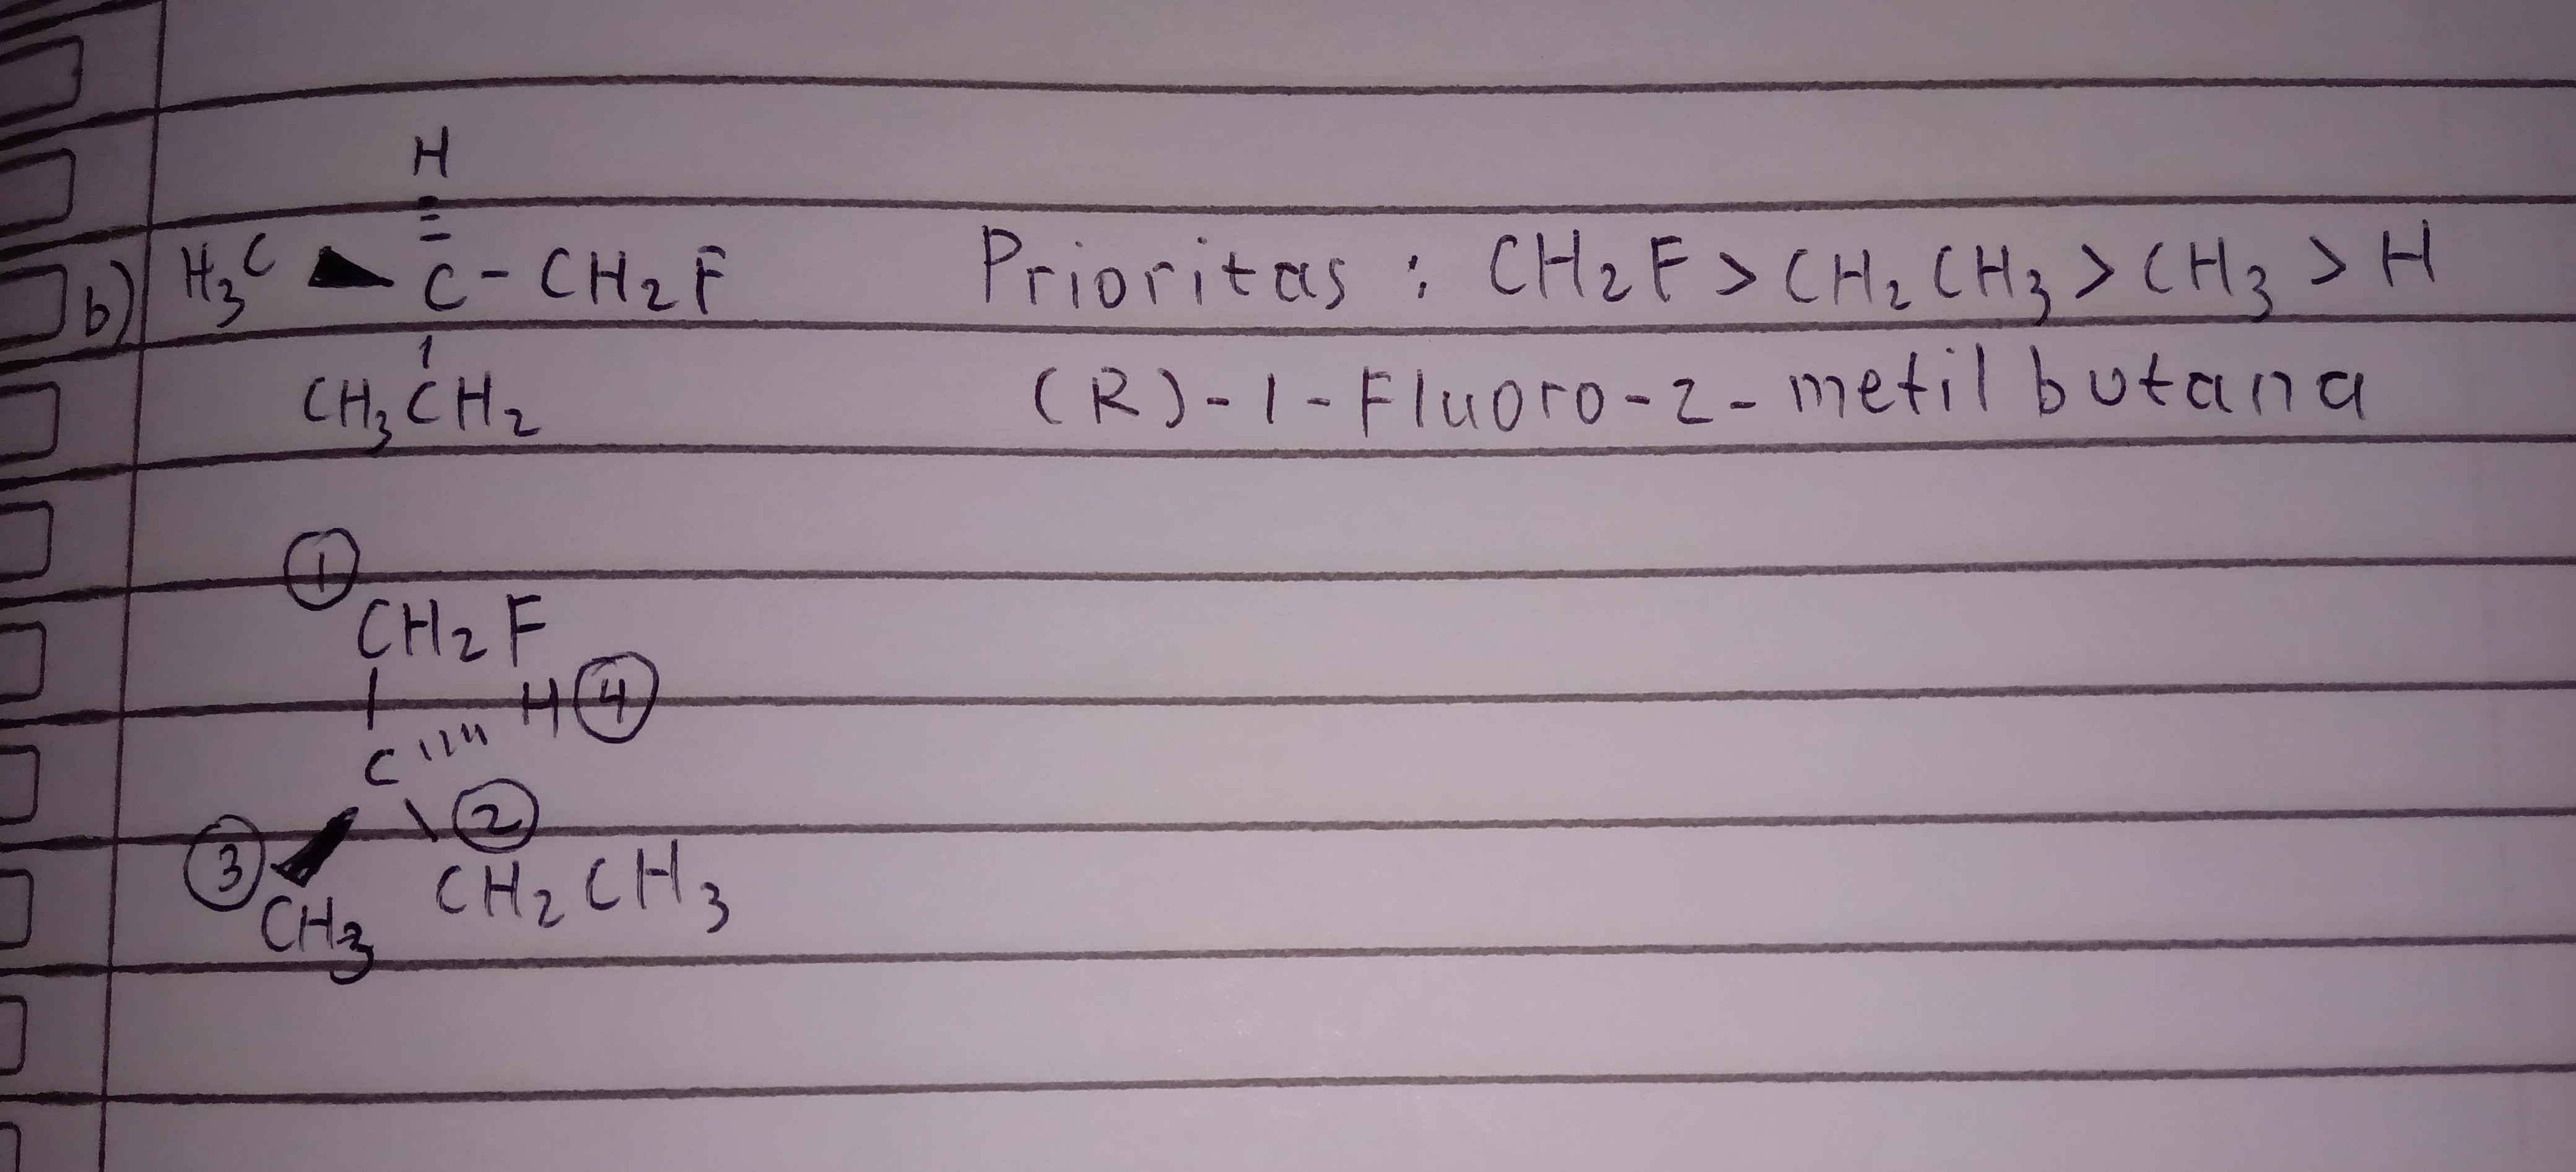 H
b) H₃C C - CH₂F Prioritas : CH₂F > CH₂CH₃ > CH₃ > H
CH₃CH₂ (R)-1-Fluoro-2-metil butana
①
CH₂F
H ④
C
③ ②
CH₃ CH₂CH₃